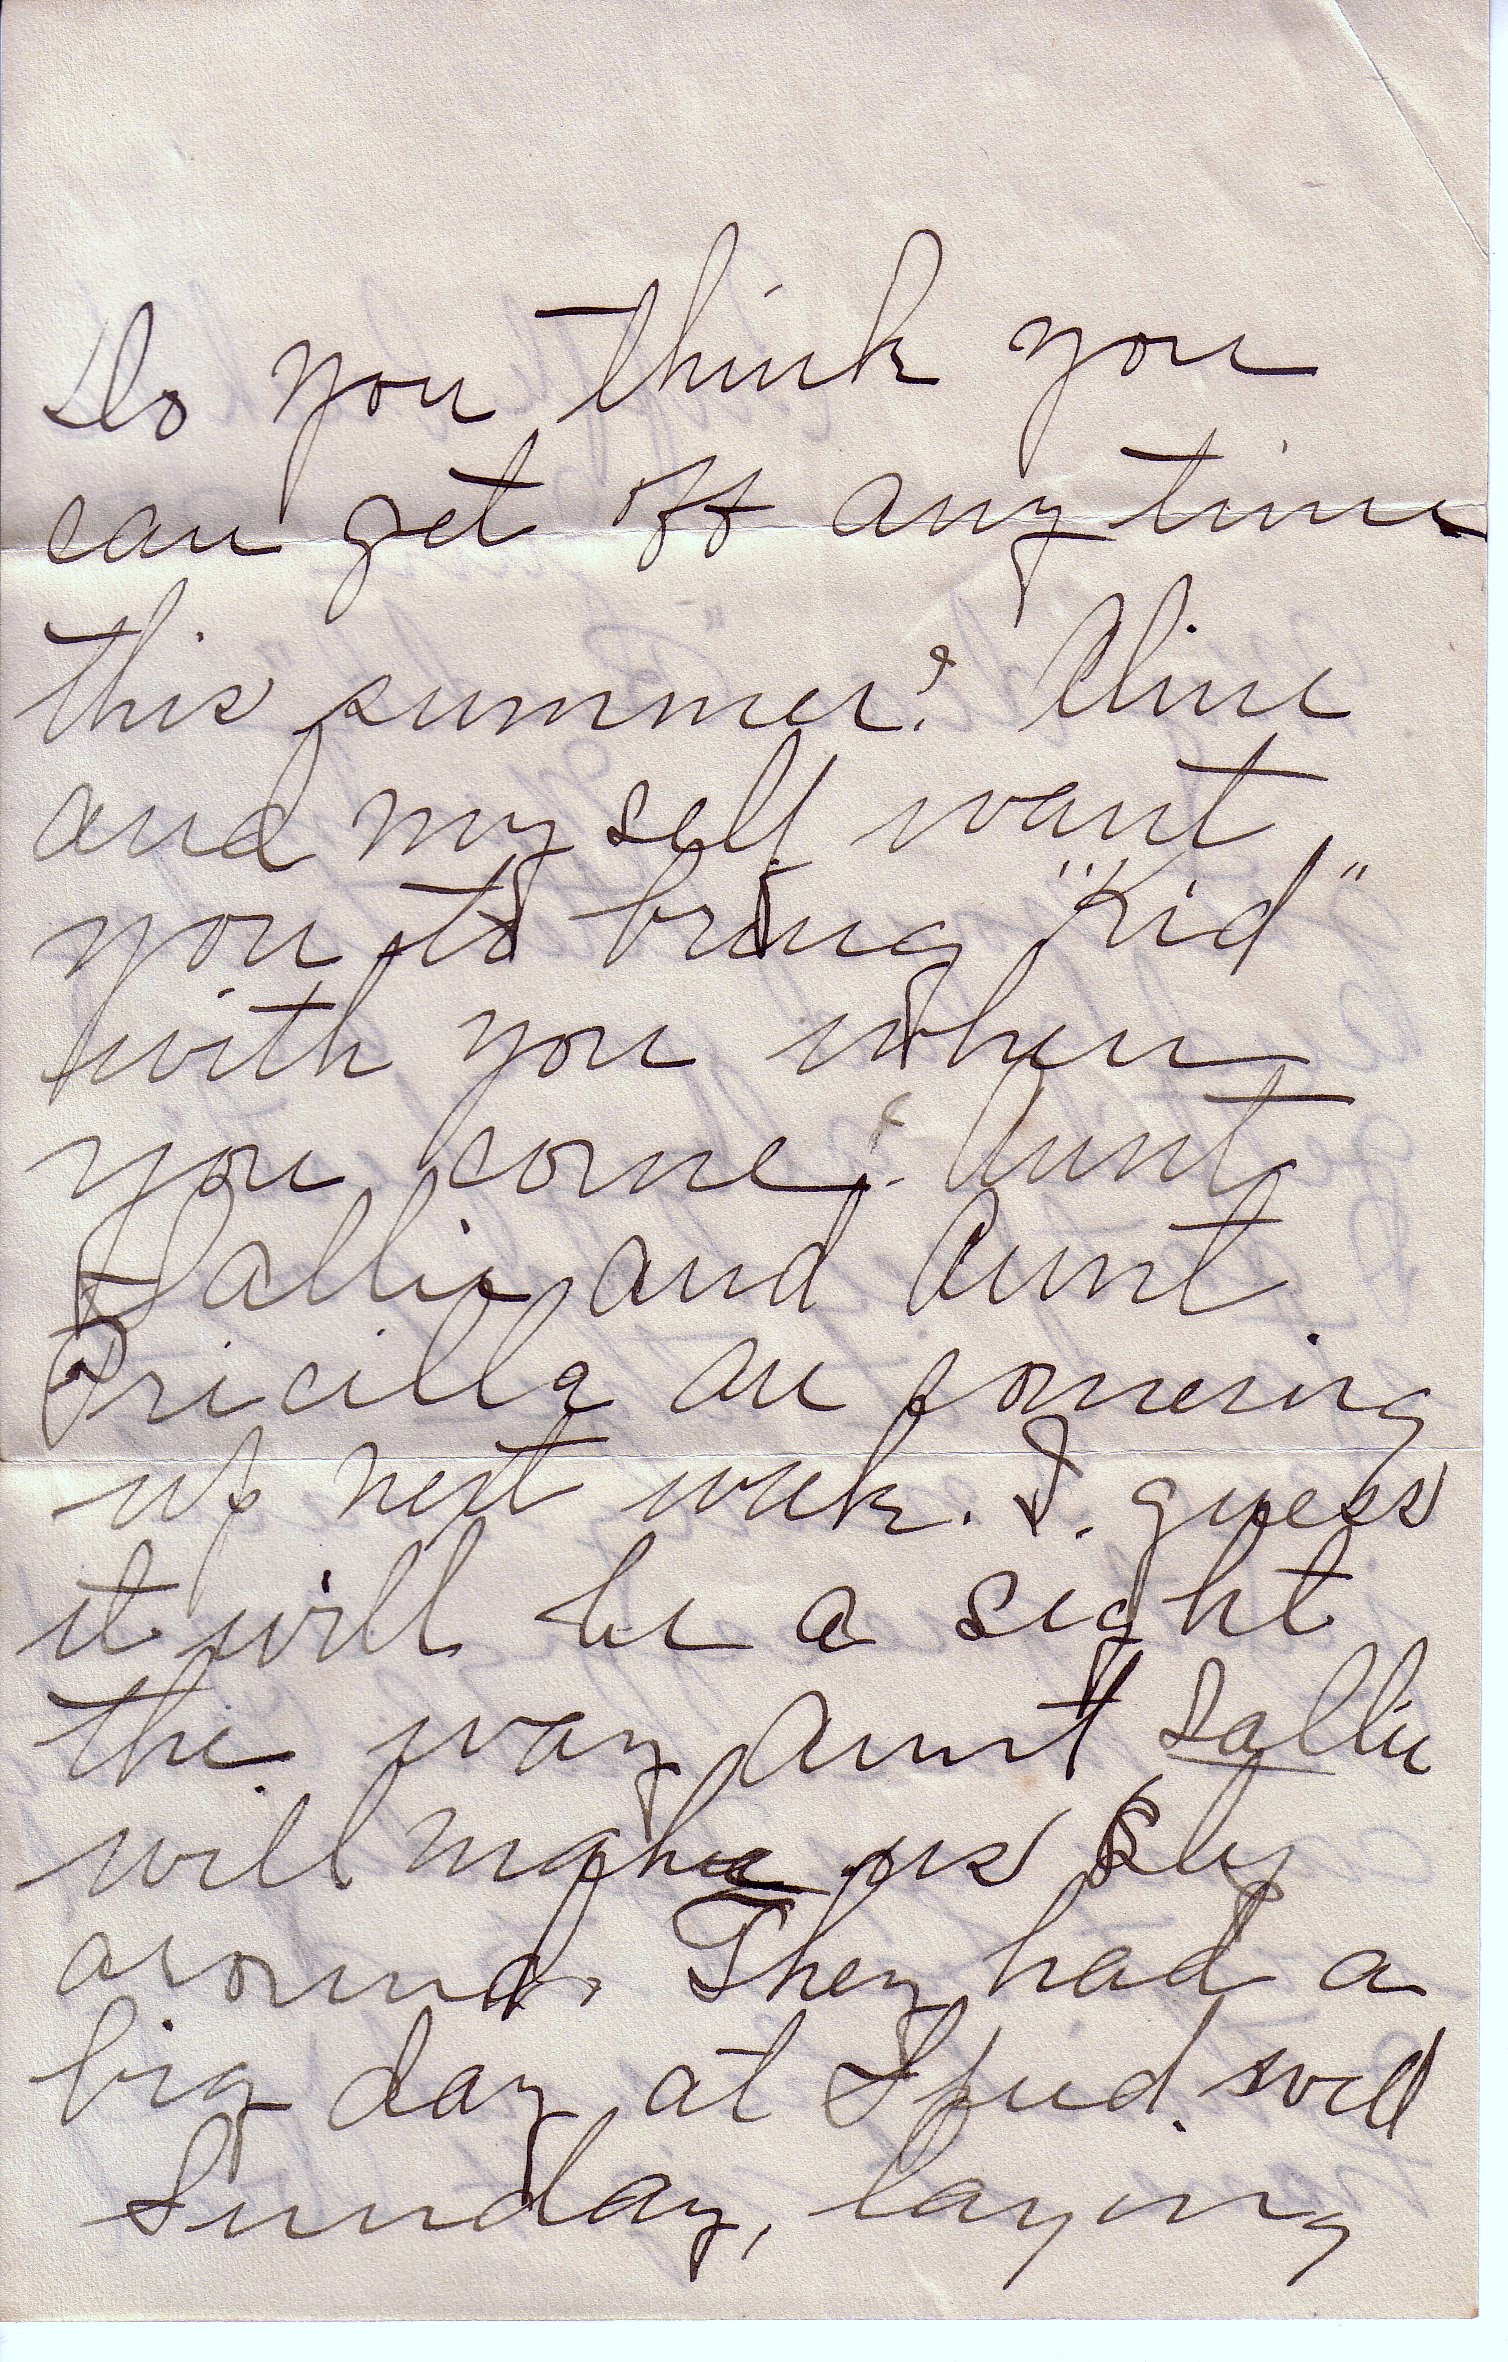 Do you think you
can get off any time
this summer? Cline
and my self want
you to bring "Kid"
with you when
you come. Aunt
Sallie and Aunt
Pricilla are comeing
up next week. I guess
it will be a sight
the way Aunt Sallie
will make us
around. They had a
big day at
Sunday, laying